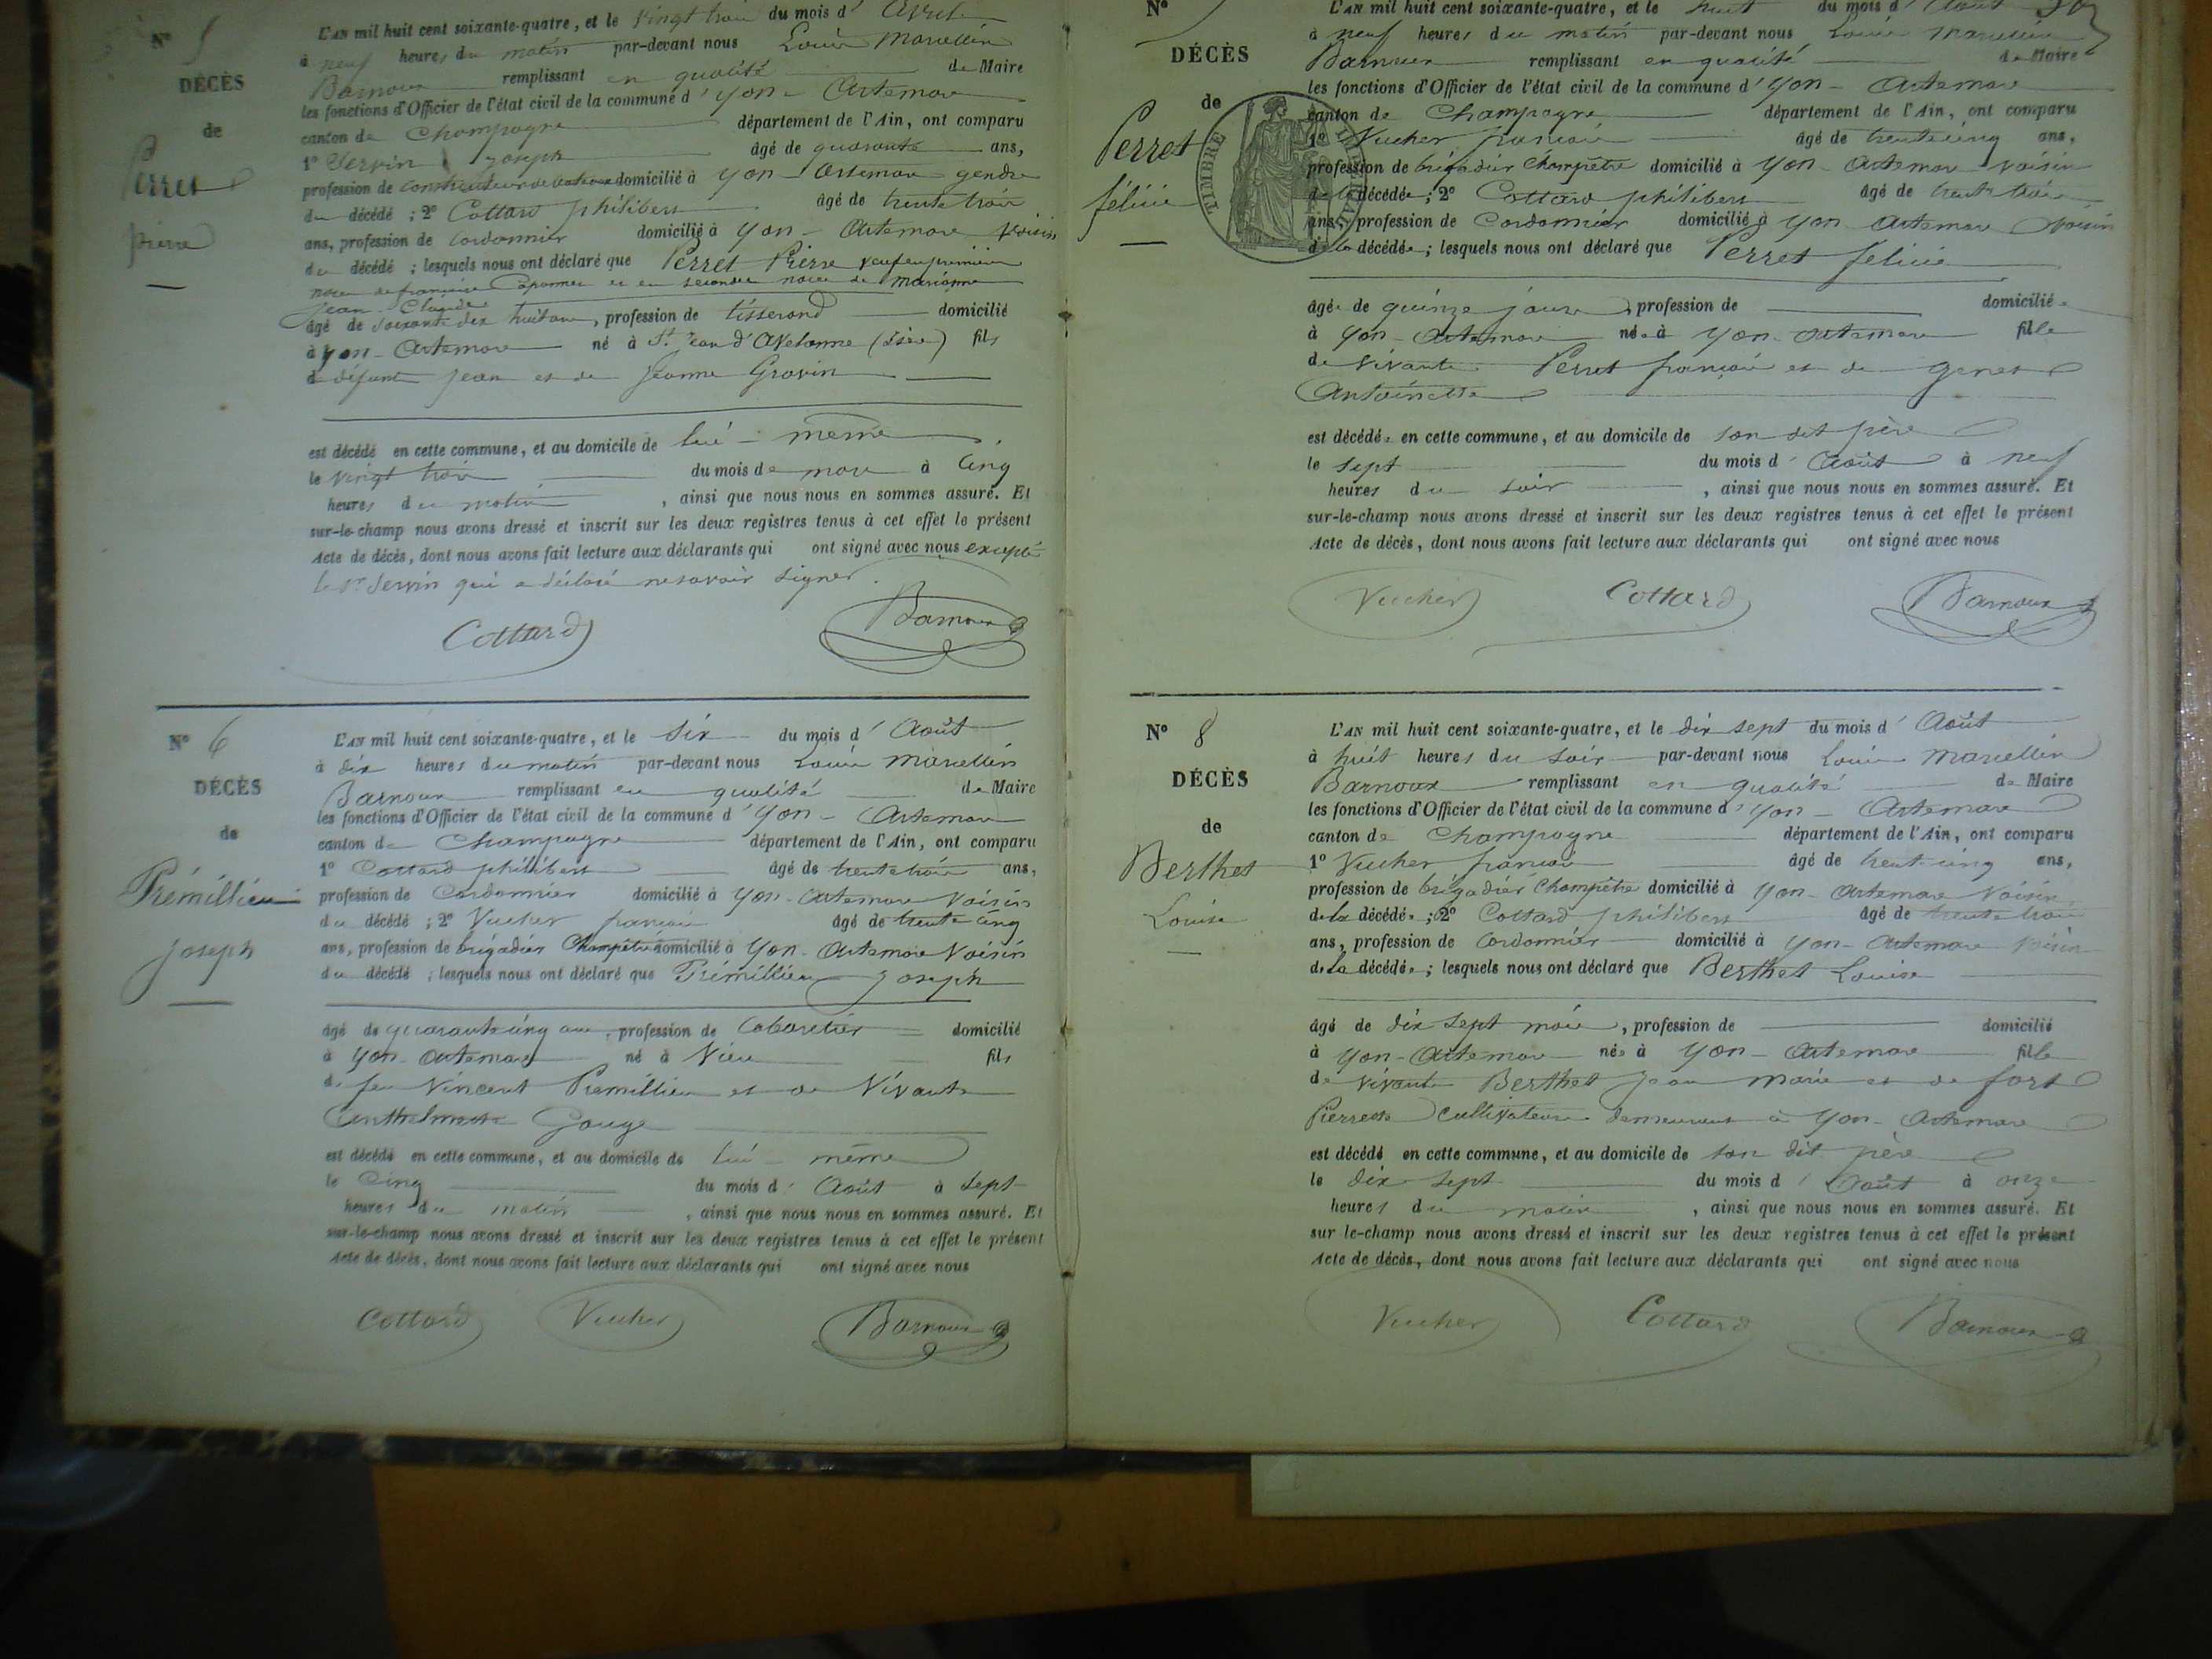 N° 5
DÉCÈS
de
Perret
pierre
L'AN mil huit cent soixante-quatre, et le vingt trois du mois d' Avril
à neuf heures du matin par-devant nous Louis Marcellin
Barnoux remplissant en qualité de Maire
les fonctions d'Officier de l'état civil de la commune d' Yon - Artemare
canton de Champagne département de l'Ain, ont comparu
1° Servin joseph âgé de quarante ans,
profession de domicilié à Yon - Artemare gendre
du décédé ; 2° Cottard philibert âgé de trente trois
ans, profession de Cordonnier domicilié à Yon - Artemare voisin
du décédé ; lesquels nous ont déclaré que Perret Pierre veuf en première
noce de françoise et en seconde noce de marianne
Jean Claude
âgé de soixante dix huit ans, profession de tisserand domicilié
à Yon - Artemare né à St jean d'Avelanne (isère) fils
de défunts jean et de Jeanne Gravin
est décédé en cette commune, et au domicile de lui - même
le vingt trois du mois de mars à cinq
heures du matin, ainsi que nous nous en sommes assuré. Et
sur-le-champ nous avons dressé et inscrit sur les deux registres tenus à cet effet le présent
Acte de décès, dont nous avons fait lecture aux déclarants qui ont signé avec nous excepté
le Sr Servin qui a déclaré ne savoir signer.
Cottard Barnoux
N° 6
DÉCÈS
de
Prémillieu
joseph
L'AN mil huit cent soixante-quatre, et le six du mois d' Août
à dix heures du matin par-devant nous Louis Marcellin
Barnoux remplissant en qualité de Maire
les fonctions d'Officier de l'état civil de la commune d' Yon - Artemare
canton de Champagne département de l'Ain, ont comparu
1° Cottard philibert âgé de trente trois ans,
profession de Cordonnier domicilié à Yon - Artemare Voisin
du décédé ; 2° Vucher françois âgé de trente cinq
ans, profession de brigadier Champêtre domicilié à Yon - Artemare Voisin
du décédé ; lesquels nous ont déclaré que Prémillieu joseph
âgé de quarante cinq ans, profession de Cabaretier domicilié
à Yon - Artemare né à Vieu fils
de feu Vincent Premillieu et de Vivante
Anthelmette Gouge
est décédé en cette commune, et au domicile de lui - même
le Cinq du mois d' Août à sept
heures du matin, ainsi que nous nous en sommes assuré. Et
sur-le-champ nous avons dressé et inscrit sur les deux registres tenus à cet effet le présent
Acte de décès, dont nous avons fait lecture aux déclarants qui ont signé avec nous
Cottard Vucher Barnoux
N°
DÉCÈS
de
Perret
félicie
TIMBRE
L'AN mil huit cent soixante-quatre, et le huit du mois d' Août
à neuf heures du matin par-devant nous Louis Marcellin
Barnoux remplissant en qualité de Maire
les fonctions d'Officier de l'état civil de la commune d' Yon - Artemare
canton de Champagne département de l'Ain, ont comparu
1° Vucher françois âgé de trente cinq ans,
profession de brigadier Champêtre domicilié à Yon - Artemare Voisin
de la décédée ; 2° Cottard philibert âgé de trente trois
ans, profession de Cordonnier domicilié à Yon Artemare Voisin
de la décédée ; lesquels nous ont déclaré que Perret félicie
âgée de quinze jours, profession de domiciliée
à Yon - Artemare née à Yon - Artemare fille
de vivants Perret françois et de genet
Antoinette
est décédée en cette commune, et au domicile de son dit père
le sept du mois d' Août à neuf
heures du soir, ainsi que nous nous en sommes assuré. Et
sur-le-champ nous avons dressé et inscrit sur les deux registres tenus à cet effet le présent
Acte de décès, dont nous avons fait lecture aux déclarants qui ont signé avec nous
Vucher Cottard Barnoux
N° 8
DÉCÈS
de
Berthet
Louise
L'AN mil huit cent soixante-quatre, et le dix sept du mois d' Août
à huit heures du soir par-devant nous Louis Marcellin
Barnoux remplissant en qualité de Maire
les fonctions d'Officier de l'état civil de la commune d' Yon - Artemare
canton de Champagne département de l'Ain, ont comparu
1° Vucher françois âgé de trente cinq ans,
profession de brigadier Champêtre domicilié à Yon - Artemare Voisin
de la décédée ; 2° Cottard philibert âgé de trente trois
ans, profession de Cordonnier domicilié à Yon - Artemare voisin
de la décédée ; lesquels nous ont déclaré que Berthet Louise
âgé de dix sept mois, profession de domicilié
à Yon - Artemare née à Yon - Artemare fille
de vivants Berthet jean marie et de fort
Pierrette cultivateurs demeurant à Yon - Artemare
est décédé en cette commune, et au domicile de son dit père
le dix sept du mois d' Août à onze
heures du matin, ainsi que nous nous en sommes assuré. Et
sur le-champ nous avons dressé et inscrit sur les deux registres tenus à cet effet le présent
Acte de décès, dont nous avons fait lecture aux déclarants qui ont signé avec nous
Vucher Cottard Barnoux